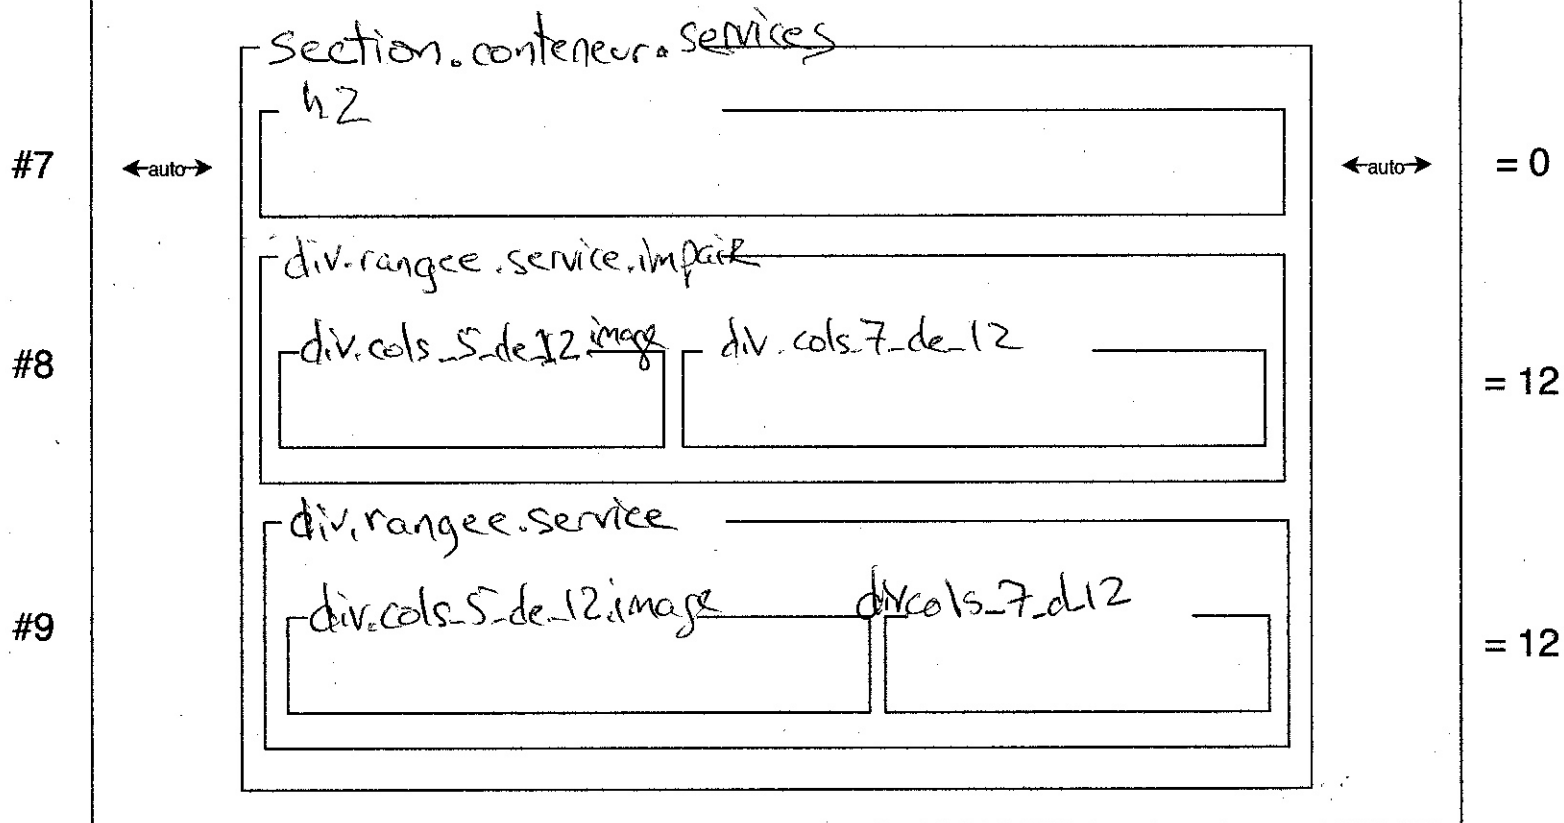 section.conteneur.services
h2
#7 auto auto = 0
div.rangee.service.impair
div.cols_5_de_12.image div.cols_7_de_12
#8 = 12
div.rangee.service
div.cols_5_de_12.image divcols_7_d12
#9 = 12